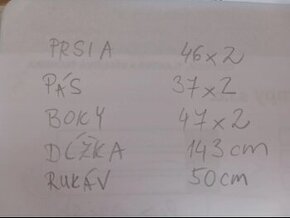 PRSIA 46x2
PÁS 37x2
BOKY 47x2
DĹŽKA 143cm
RUKÁV 50cm